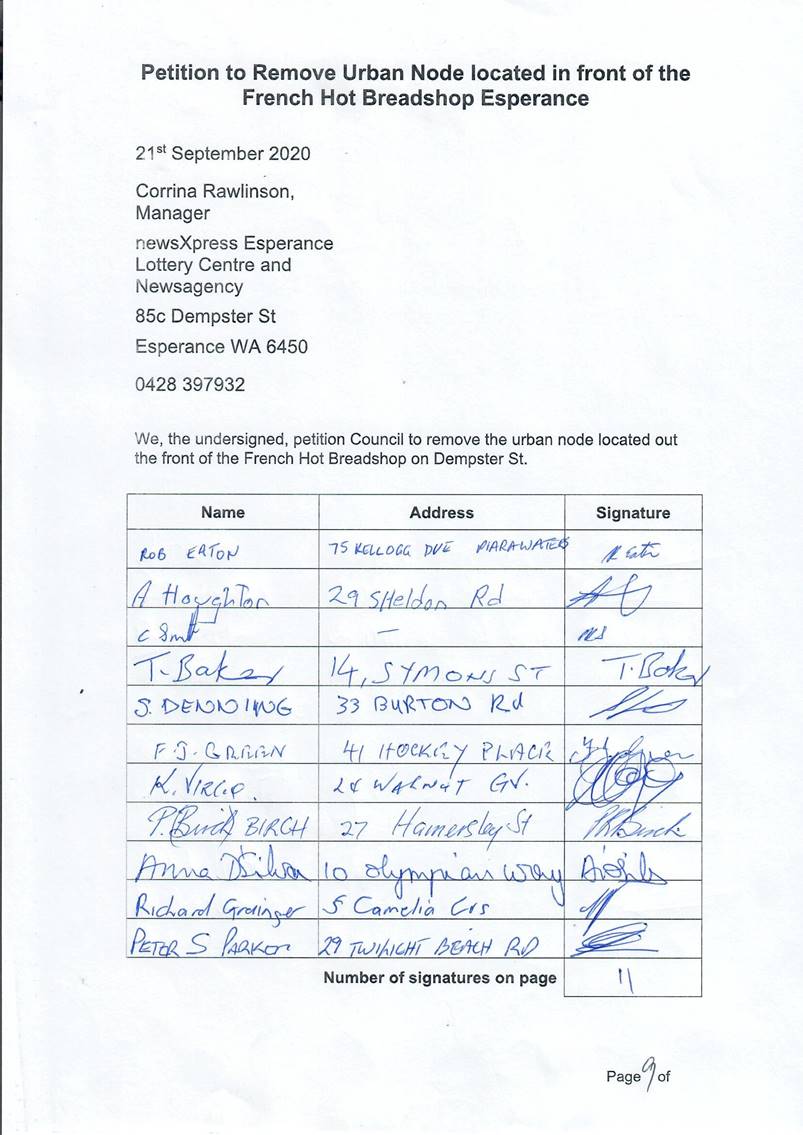 Petition to Remove Urban Node located in front of the
French Hot Breadshop Esperance
21st September 2020
Corrina Rawlinson,
Manager
newsXpress Esperance
Lottery Centre and
Newsagency
85c Dempster St
Esperance WA 6450
0428 397932
We, the undersigned, petition Council to remove the urban node located out
the front of the French Hot Breadshop on Dempster St.
Name Address Signature
ROB EATON 75 KELLOGG DVE PIARAWATERS R Eaton
A Houghton 29 SHeldon Rd
C —
T. Baker 14, SYMONS ST T. Baker
S. DENNING 33 BURTON Rd
F J. GREEN 41 HOCKEY PLACE
K. VIRGO. 24 WALNUT GV.
P. Birch BIRCH 27 Hamersley St Birch
Anna D'Silva 10 olympian way
Richard Grainger 5 Camelia Crs
PETER S PARKER 29 TWILIGHT BEACH RD
Number of signatures on page 11
Page 9 of